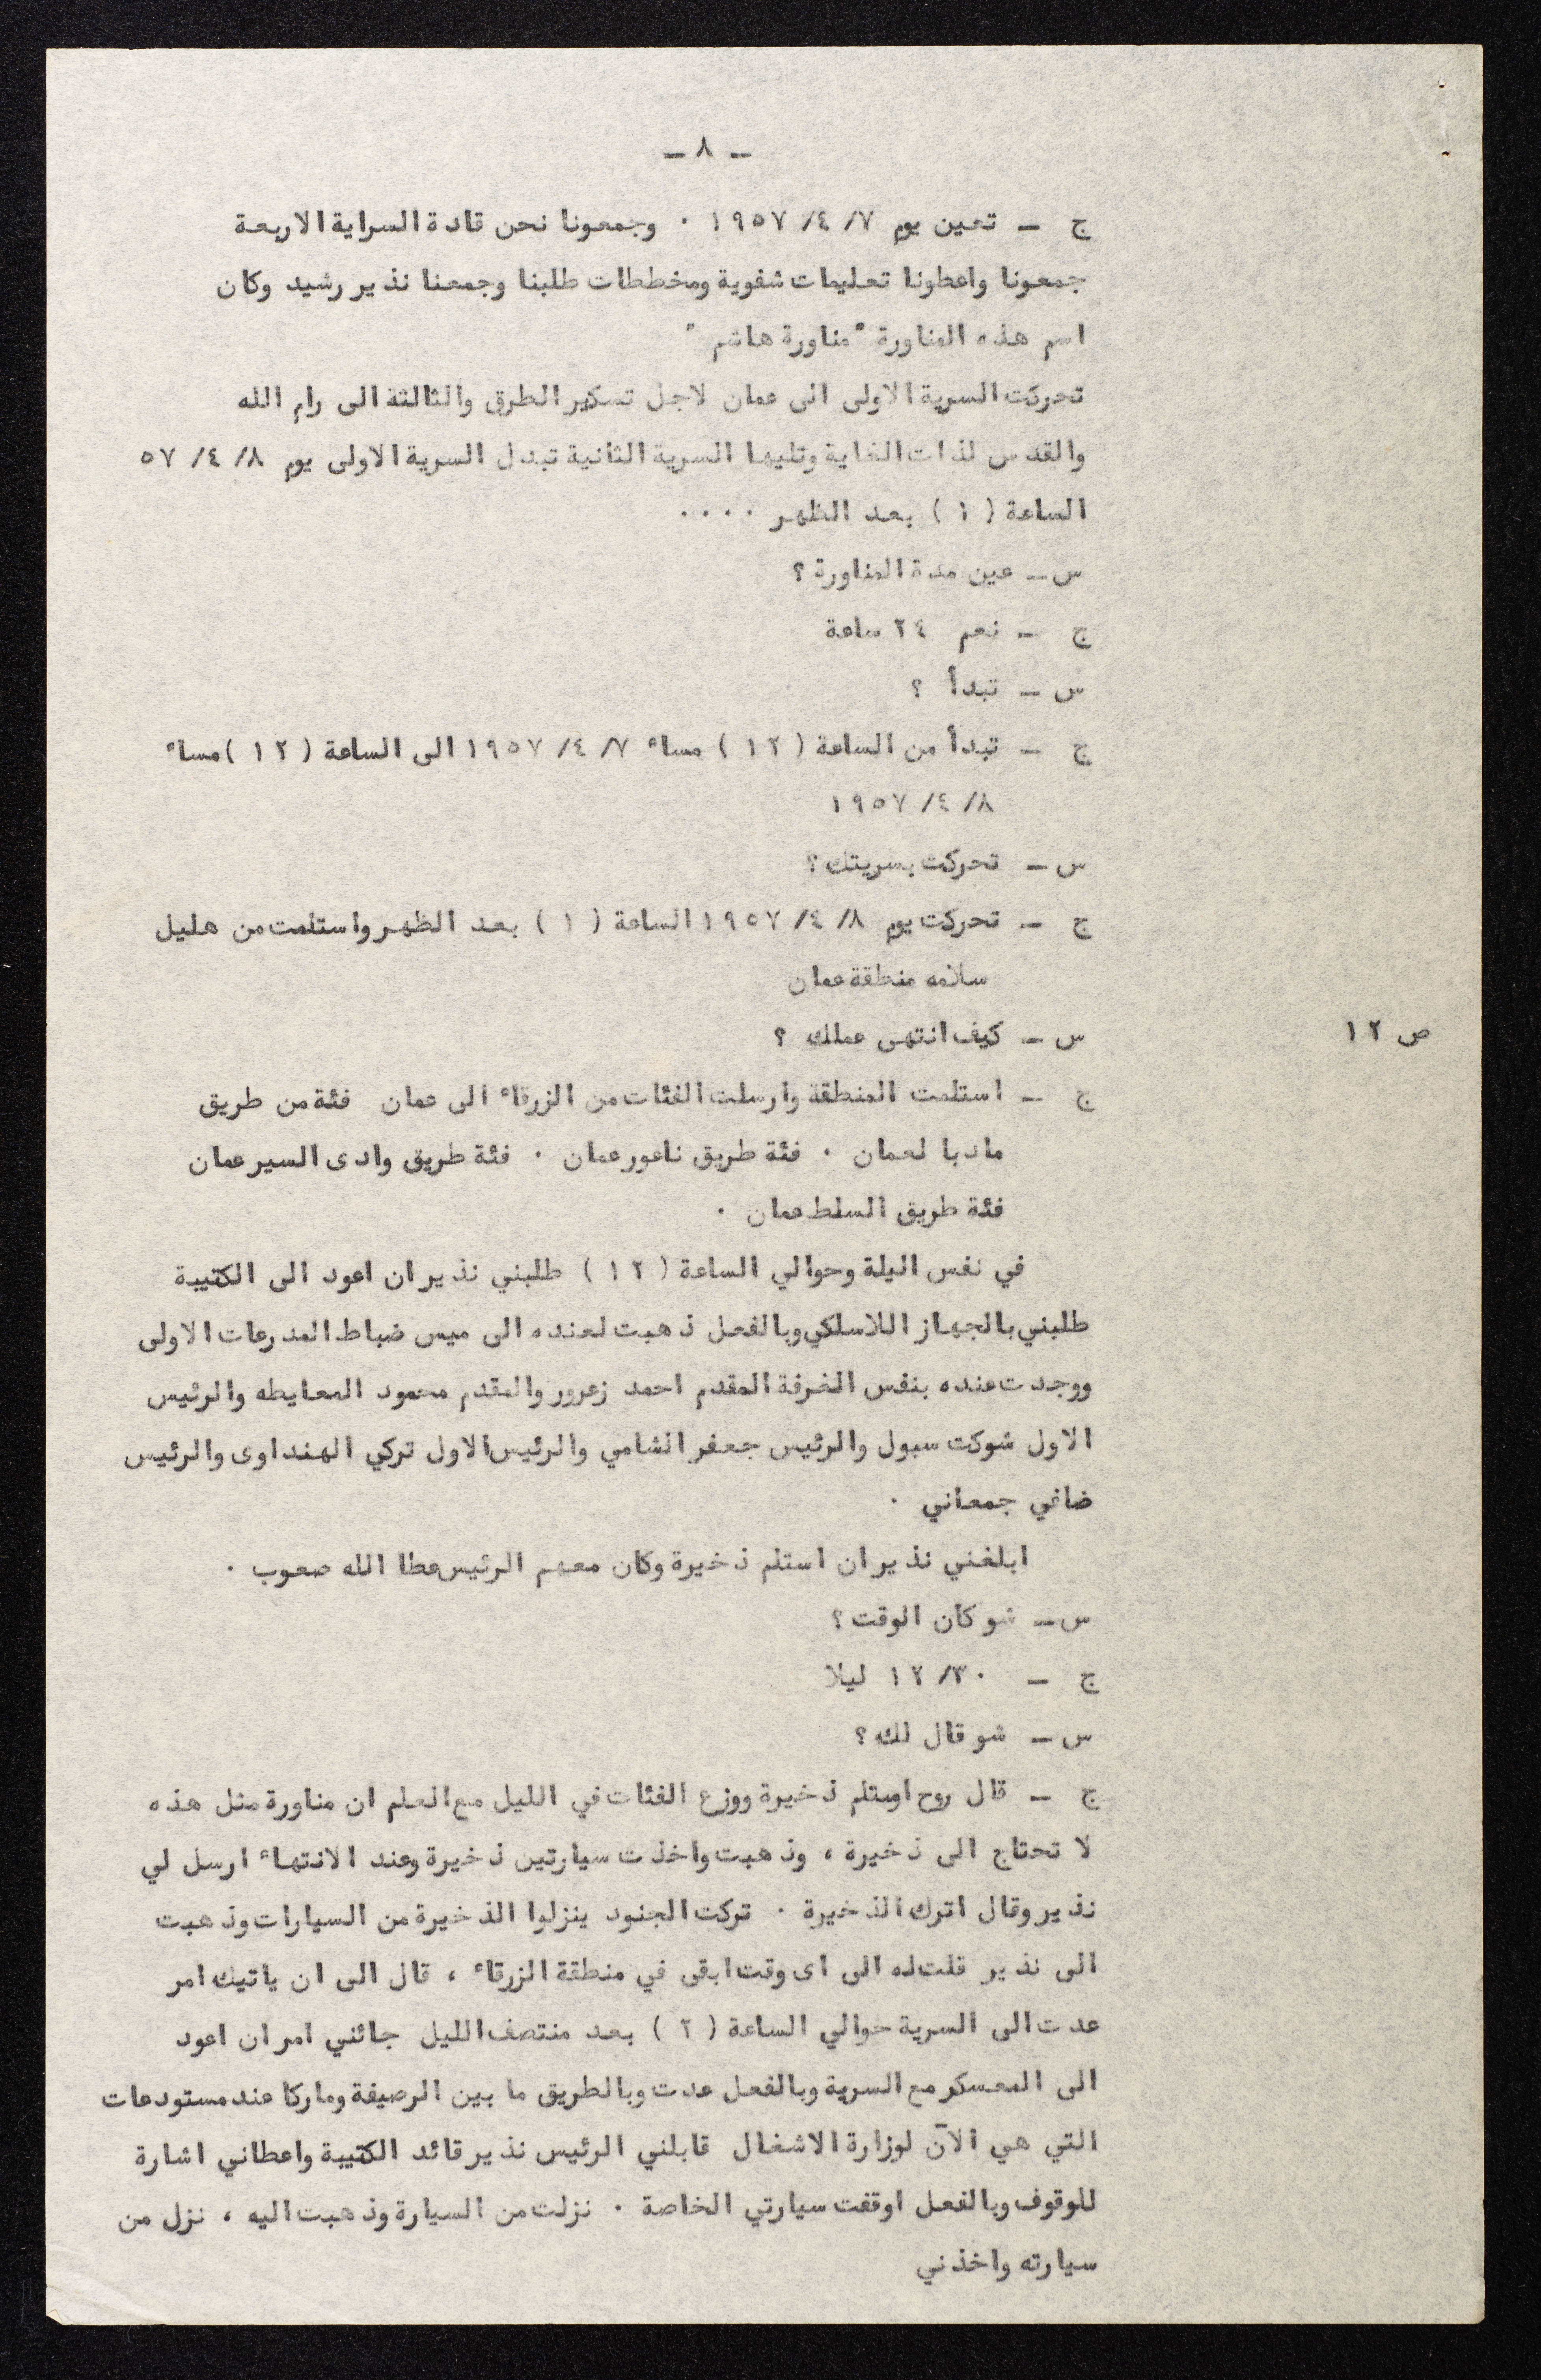 ـ ٨ ـ
ج ـ تعين يوم ٧/ ٤/ ١٩٥٧ . وجمعونا نحن قادة السراية الاربعة
جمعونا واعطونا تعليمات شفوية ومخططات طلبنا وجمعنا نذير رشيد وكان
اسم هذه المناورة "مناورة هاشم "
تحركت السرية الاولى الى عمان لاجل تسكير الطرق والثالثة الى رام الله
والقدس لذات الغاية وتليها السرية الثانية تبدل السرية الاولى يوم ٨/ ٤/ ٥٧
الساعة ( ١ ) بعد الظهر ....
س ـ عين مدة المناورة ؟
ج ـ نعم ٢٤ ساعة
س ـ تبدأ ؟
ج ـ تبدأ من الساعة ( ١٢ ) مساء ٧/ ٤/ ١٩٥٧ الى الساعة ( ١٢ ) مساء
٨/ ٤/ ١٩٥٧
س ـ تحركت بسريتك ؟
ج ـ تحركت يوم ٨/ ٤/ ١٩٥٧ الساعة ( ١ ) بعد الظهر واستلمت من هليل
سلامه منطقة عمان
ص ١٢
س ـ كيف انتهى عملك ؟
ج ـ استلمت المنطقة وارسلت الفئات من الزرقاء الى عمان فئة من طريق
مادبا لعمان . فئة طريق ناعور عمان . فئة طريق وادى السير عمان
فئة طريق السلط عمان .
في نفس اليلة وحوالي الساعة ( ١٢ ) طلبني نذير ان اعود الى الكتيبة
طلبني بالجهاز اللاسلكي وبالفعل ذهبت لعنده الى ميس ضباط المدرعات الاولى
ووجدت عنده بنفس الغرفة المقدم احمد زعرور والمقدم محمود المعايطه والرئيس
الاول شوكت سبول والرئيس جعفر الشامي والرئيس الاول تركي الهنداوى والرئيس
ضافي جمعاني .
ابلغني نذير ان استلم ذخيرة وكان معهم الرئيس عطا الله صعوب .
س ـ شو كان الوقت ؟
ج ـ ٣٠/ ١٢ ليلا
س ـ شو قال لك ؟
ج ـ قال روح اوستلم ذخيرة ووزع الفئات في الليل مع العلم ان مناورة مثل هذه
لا تحتاج الى ذخيرة ، وذهبت واخذت سيارتين ذخيرة وعند الانتهاء ارسل لي
نذير وقال اترك الذخيرة . تركت الجنود ينزلوا الذخيرة من السيارات وذهبت
الى نذير قلت له الى اى وقت ابقى في منطقة الزرقاء ، قال الى ان ياتيك امر
عدت الى السرية حوالي الساعة ( ٢ ) بعد منتصف الليل جائني امر ان اعود
الى المعسكر مع السرية وبالفعل عدت وبالطريق ما بين الرصيفة وماركا عند مستودعات
التي هي الآن لوزارة الاشغال قابلني الرئيس نذير قائد الكتيبة واعطاني اشارة
للوقوف وبالفعل اوقفت سيارتي الخاصة . نزلت من السيارة وذهبت اليه ، نزل من
سيارته واخذني